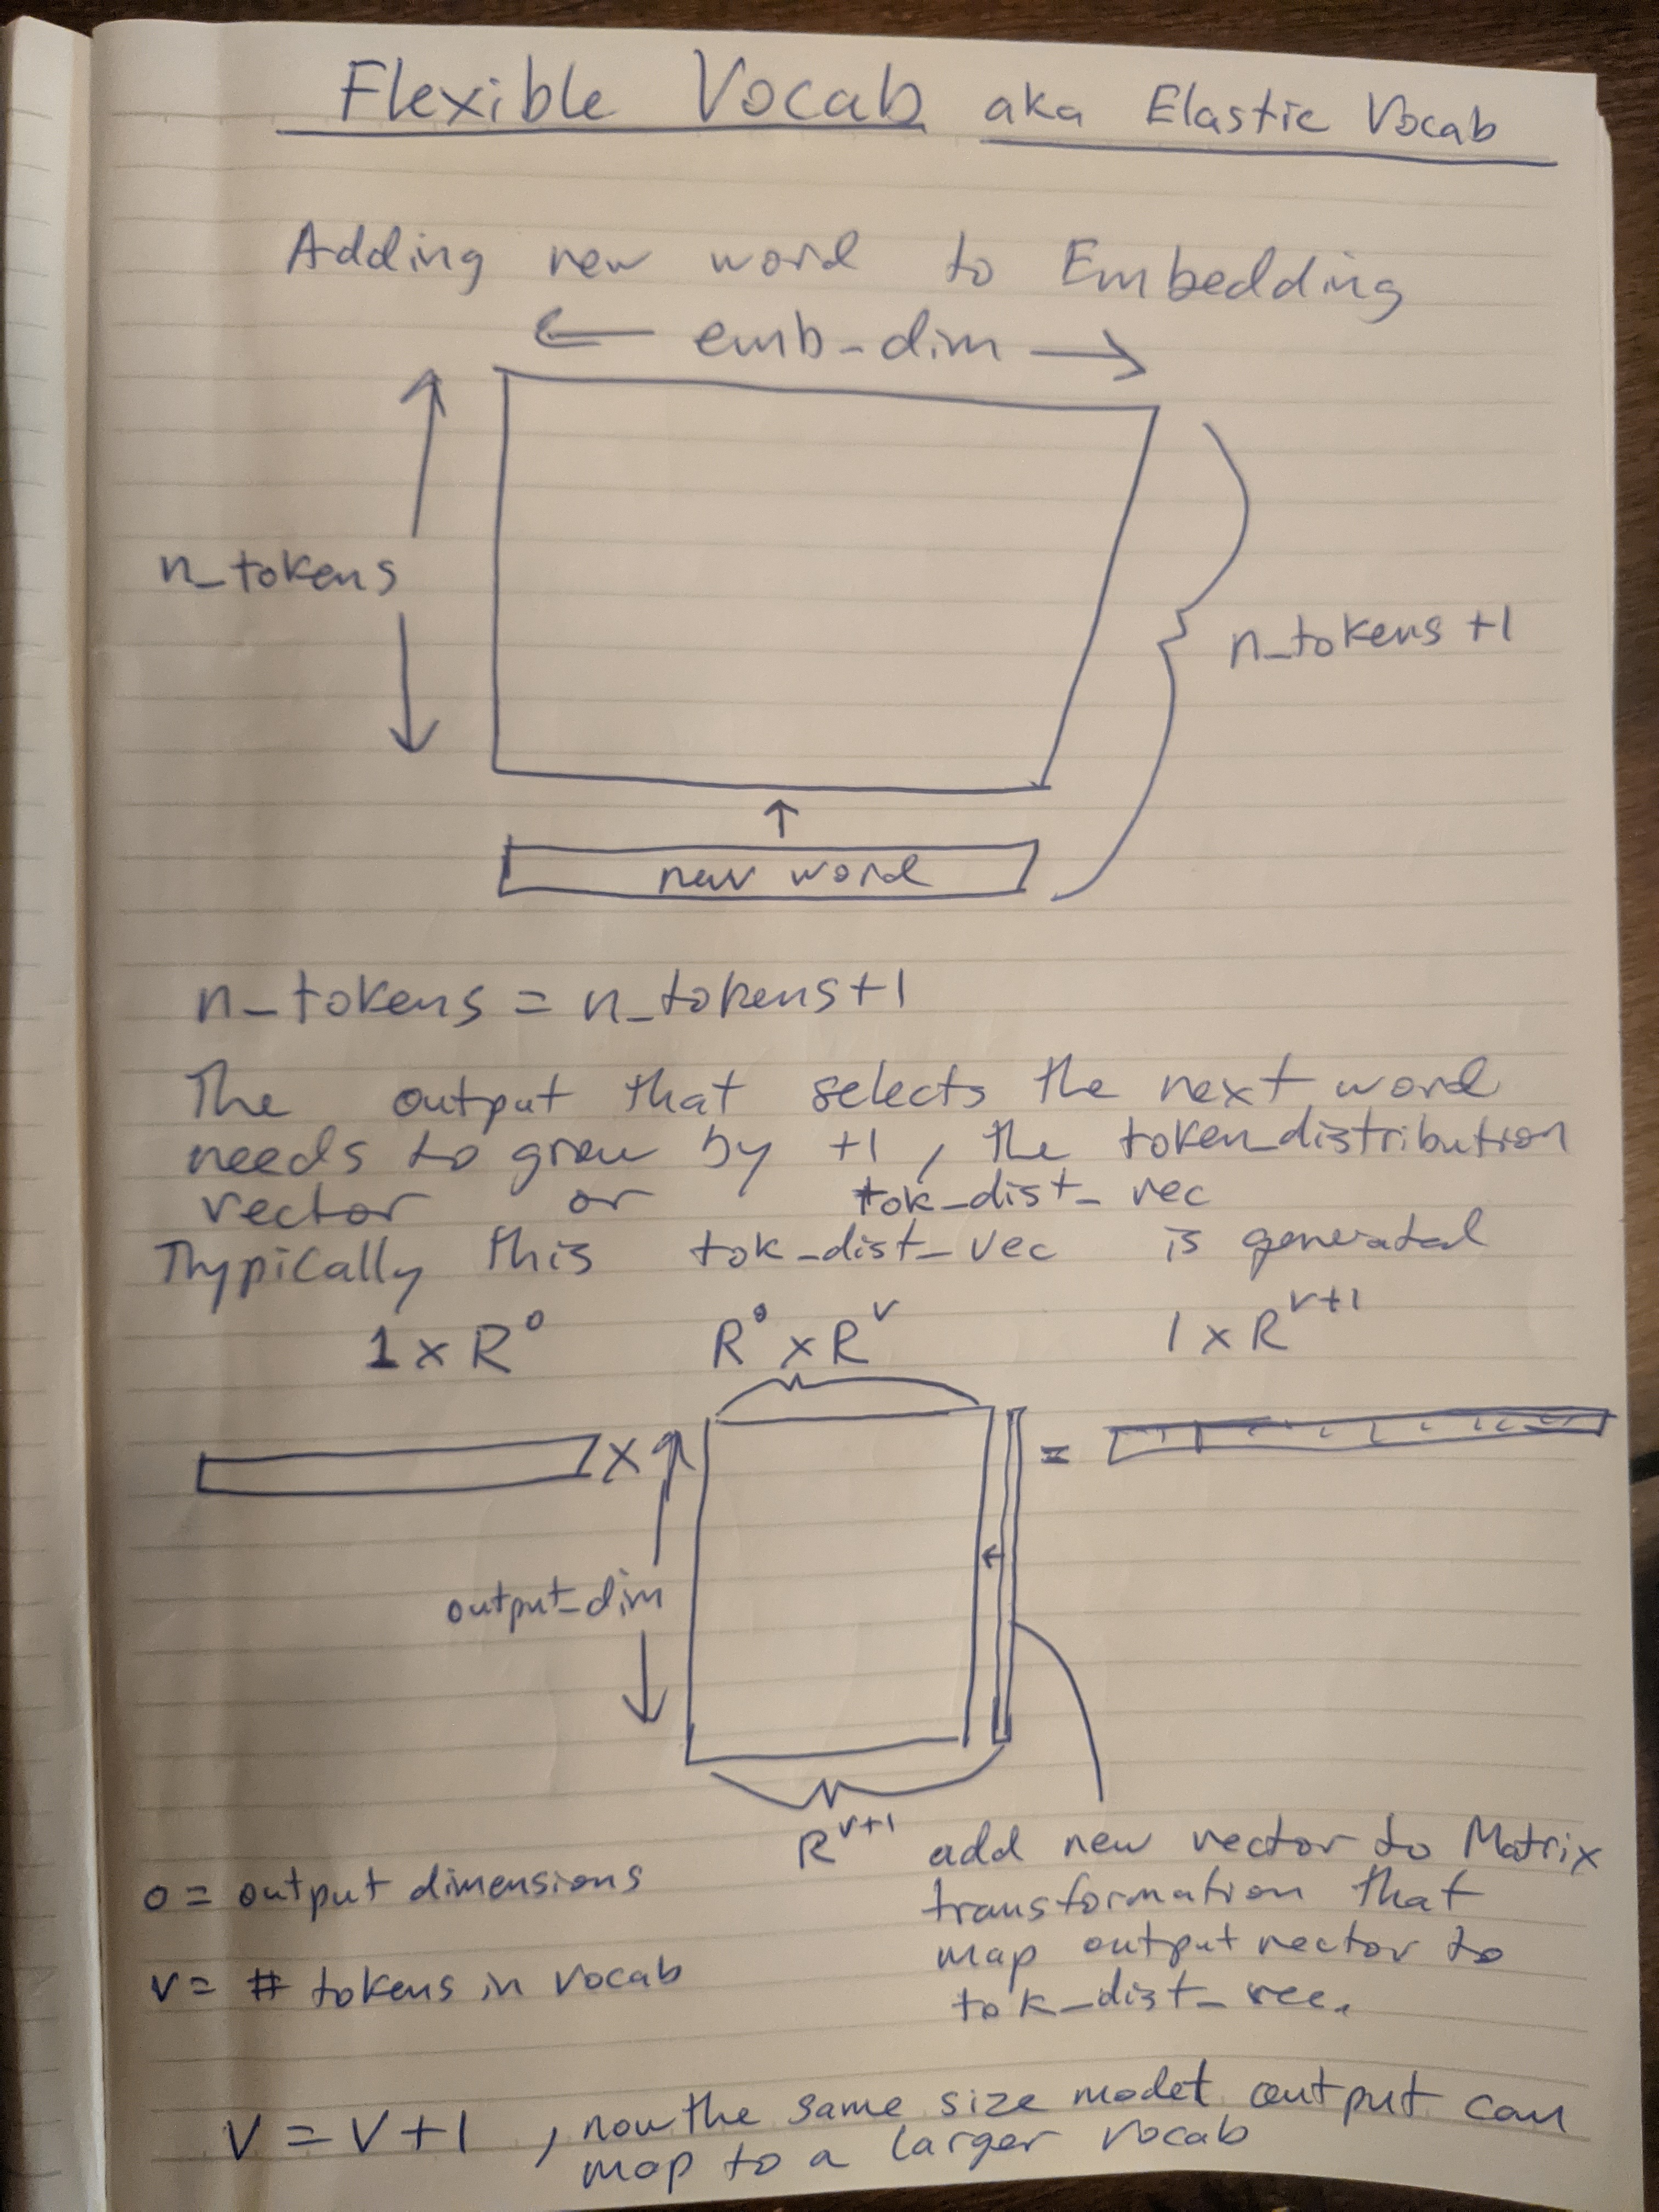 Flexible Vocab aka Elastic Vocab
Adding new word to Embedding
emb-dim
n_tokens
n_tokens +1
new word
n_tokens = n_tokens+1
The output that selects the next word
needs to grow by +1, the token_distribution
vector or tok_dist_vec
Thypically this tok_dist_vec is generatal
1 x R^o R^o x R^v 1 x R^v+1
x =
output_dim
R^v+1
add new vector to Matrix
transformation that
map output vector to
tok_dist_vec.
o = output dimensions
v = # tokens in vocab
V = V+1, now the same size model output can
map to a larger vocab